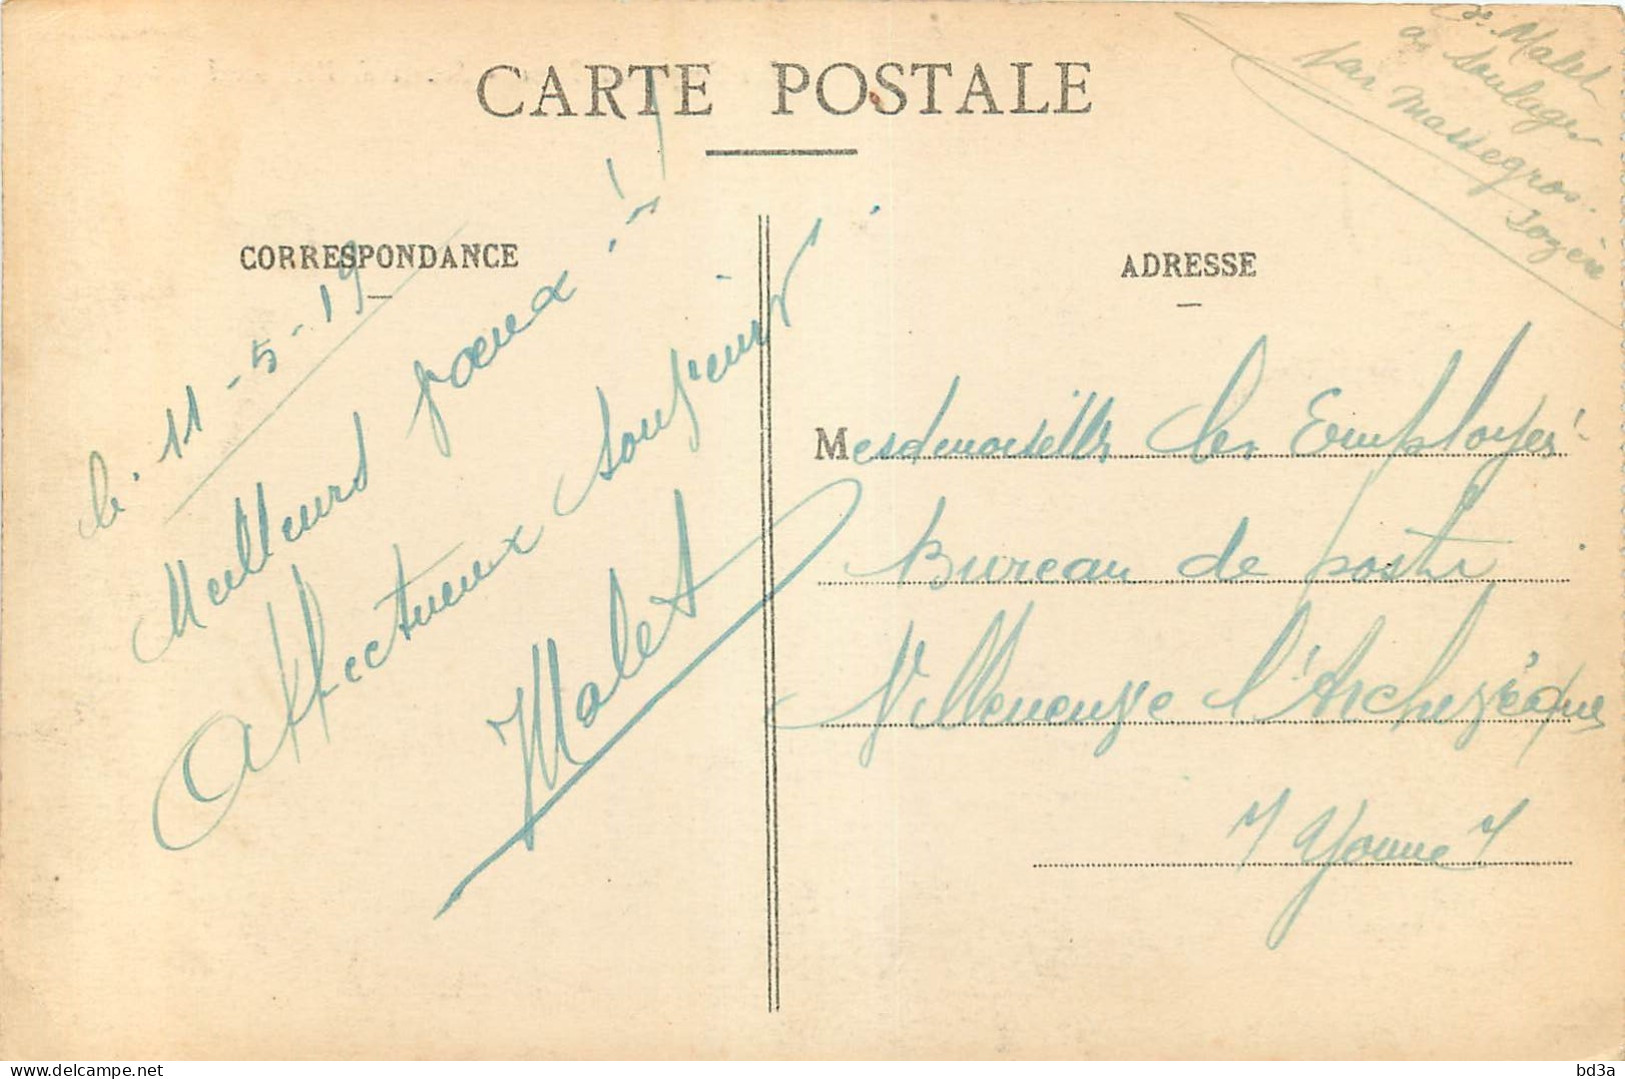 CARTE POSTALE
Malet
à Soulages
par Massegros.
Lozère
CORRESPONDANCE
le 11-5-19
Meilleurs vœux !
Affectueux souvenir
Malet
ADRESSE
Mesdemoiselles les Employés
Bureau de poste
Villeneuve l'Archevêque
Yonne
delcampe.net
bd3a